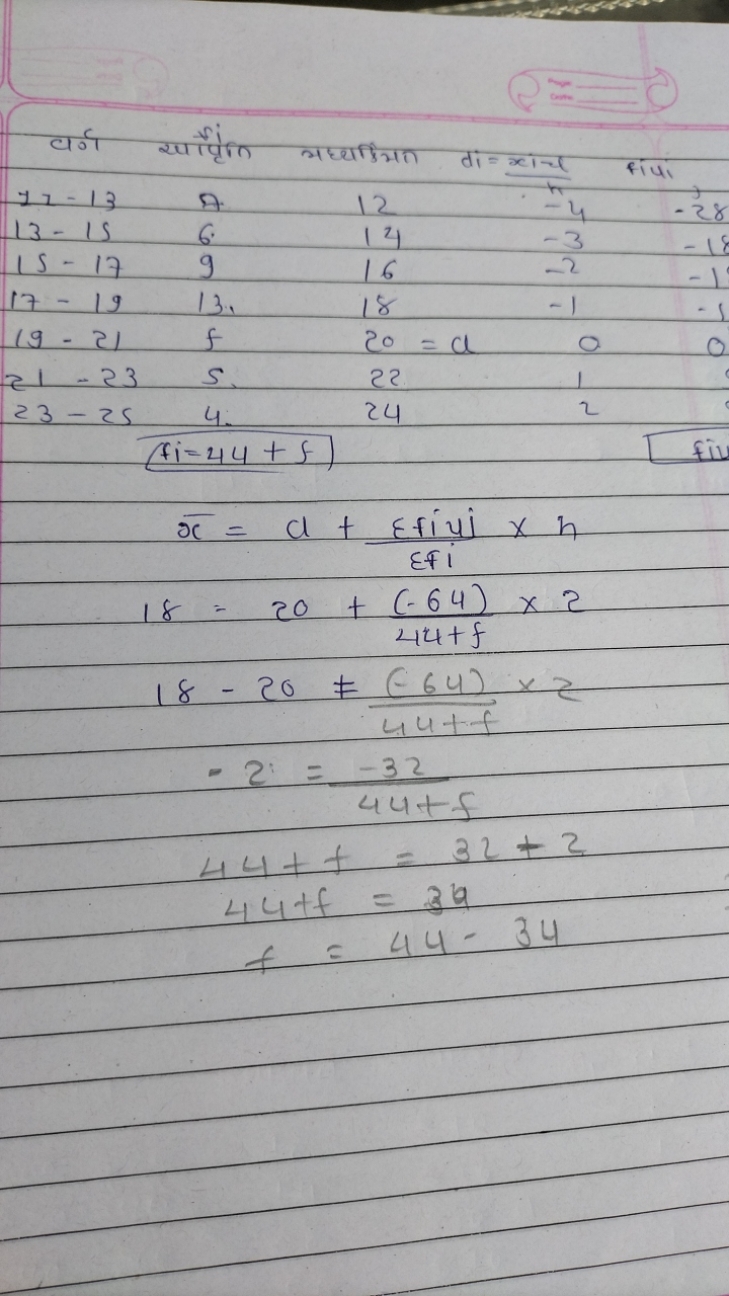 वर्ग आवृत्ति fi मध्यकिंमत di = xi-d / h fiui
11 - 13 7 12 -4 -28
13 - 15 6 14 -3 -18
15 - 17 9 16 -2
17 - 19 13 18 -1
19 - 21 f 20 = d 0 0
21 - 23 5 22 1
23 - 25 4 24 2
fi = 44 + f
x̄ = a + Σfiui / Σfi × h
18 = 20 + (-64) / 44+f × 2
18 - 20 = (-64) / 44+f × 2
-2 = -32 / 44+f
44 + f = 32 + 2
44+f = 34
f = 44 - 34